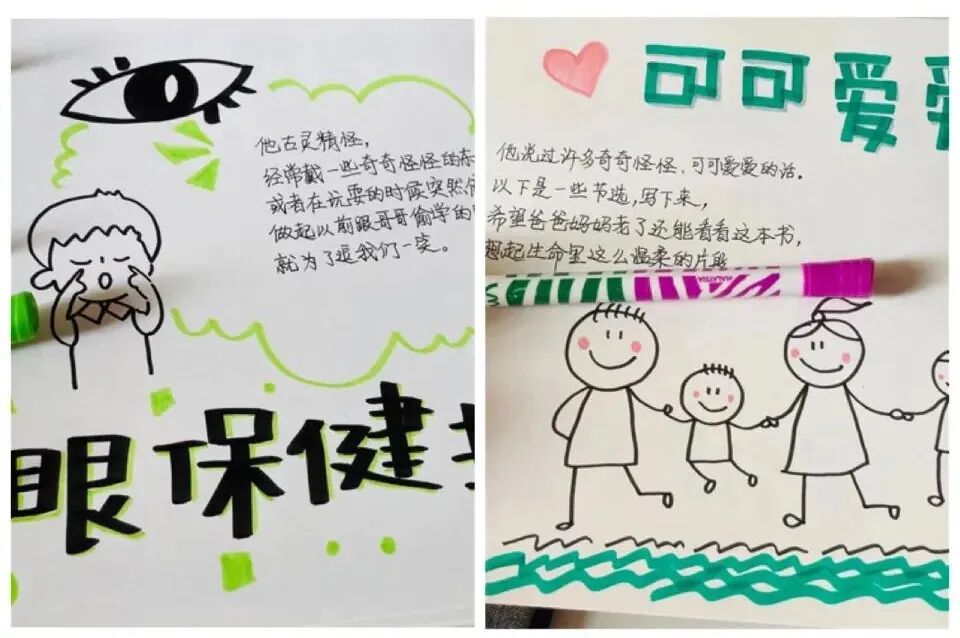 他古灵精怪，
经常戴一些奇奇怪怪的东
或者在玩耍的时候突然
做起以前跟哥哥偷学的
就为了逗我们一笑。
眼保健
可可爱爱
他说过许多奇奇怪怪、可可爱爱的话。
以下是一些节选，写下来，
希望爸爸妈妈老了还能看看这本书，
想起生命里这么温柔的片段